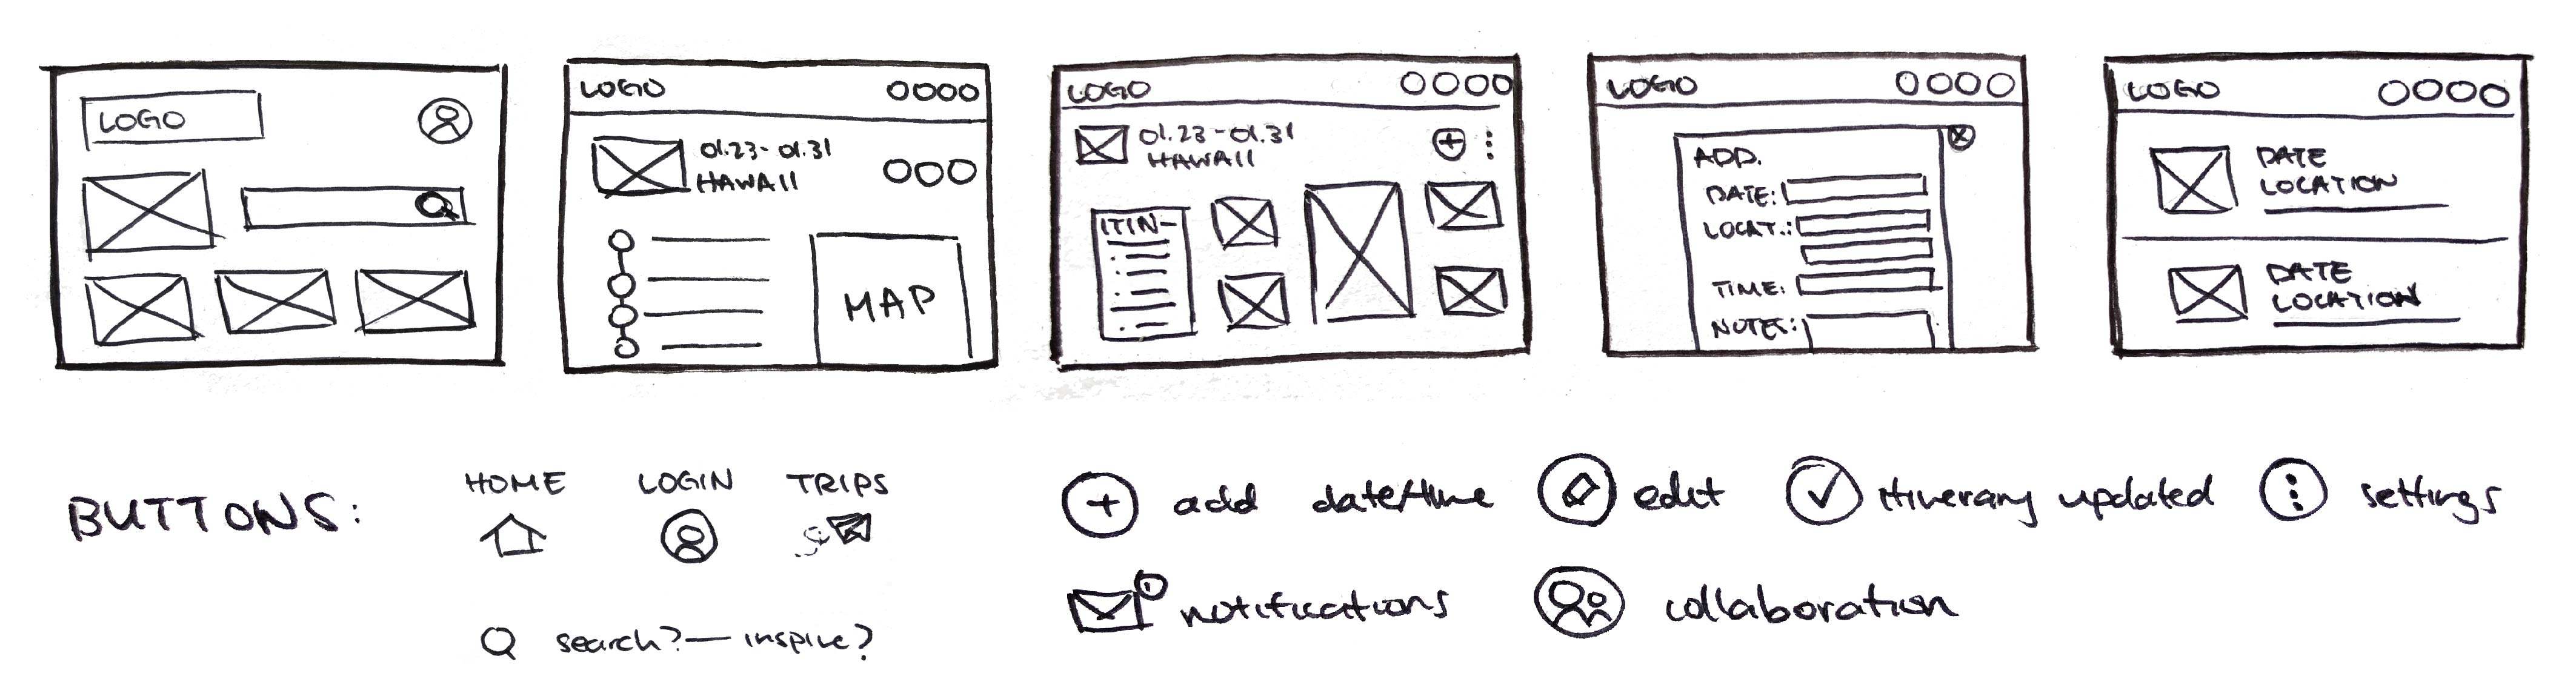 LOGO
LOGO
01.23-01.31
HAWAII
MAP
LOGO
01.23-01.31
HAWAII
ITIN-
LOGO
ADD.
DATE:
LOCAT.:
TIME:
NOTES:
LOGO
DATE
LOCATION
DATE
LOCATION
BUTTONS:
HOME LOGIN TRIPS
search?— inspire?
add date/time edit itinerary updated settings
notifications collaboration